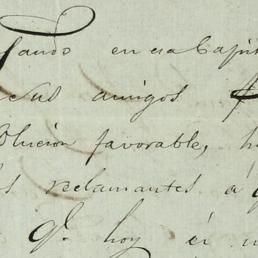 en esa Capi
sus amigos
olucion favorable, h
s reclamantes á q
q.e hoy